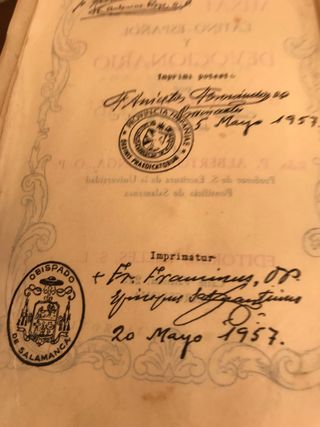 MISAL
LATINO-ESPAÑOL
Y
DEVOCIONARIO
Imprimi potest
Fr. Aniceto Fernández OP
Mayo 1957
PROVINCIA HISPANIAE
ORDINIS PRAEDICATORUM
P. ALBERTO
Profesor de S. Escritura de la Universidad
Pontificia de Salamanca
EDITORIAL
Imprimatur
+ Fr. Franciscus, OP.
Episcopus Salmantinus
20 Mayo 1957.
OBISPADO
DE SALAMANCA